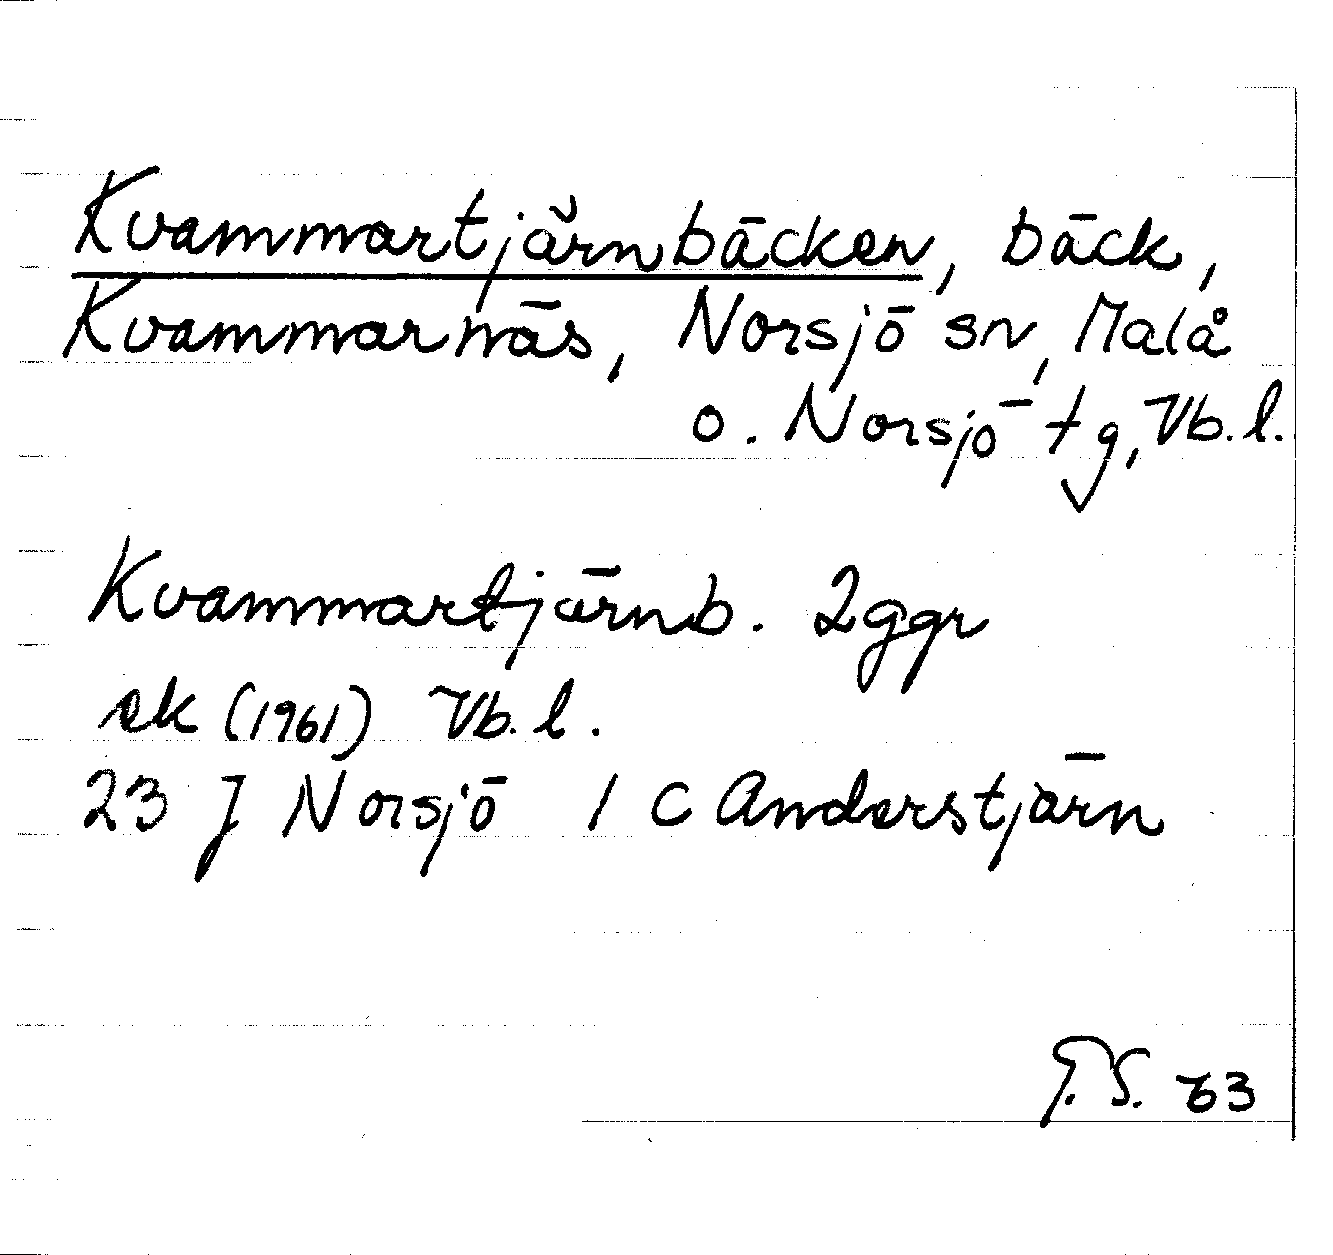 Kvammartjärnbäcken, bäck,
Kvammarnäs, Norsjö sn, Malå
o. Norsjö tg, Vb. l.
Kvammartjärnb. 2 ggr
ek (1961) Vb. l.
23 J Norsjö 1 c Anderstjärn
G.S. 63